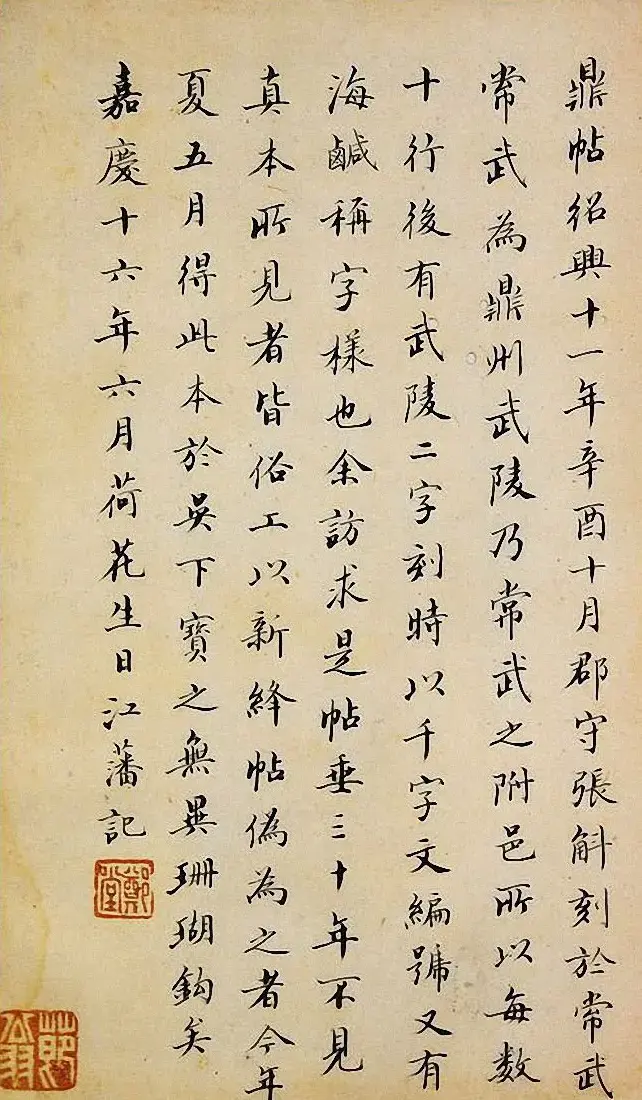 鼎帖紹興十一年辛酉十月郡守張斛刻於常武
常武為鼎州武陵乃常武之附邑所以每數
十行後有武陵二字刻時以千字文編號又有
海鹹稱字樣也余訪求是帖垂三十年不見
真本所見者皆俗工以新絳帖偽為之者今年
夏五月得此本於吳下寶之無異珊瑚鈎矣
嘉慶十六年六月荷花生日江藩記
鄭堂